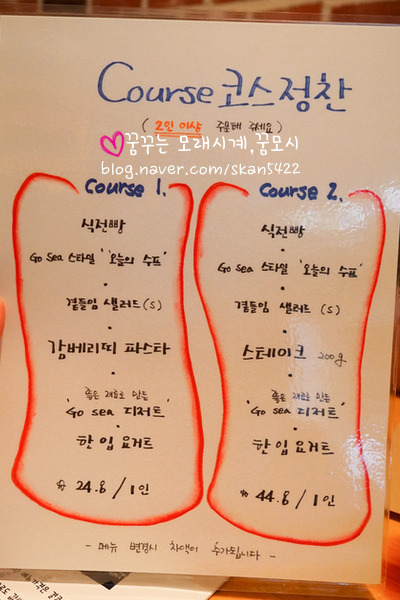 Course 코스정찬
( 2인 이상 주문해 주세요 )
꿈꾸는 모래시계,꿈모시
blog.naver.com/skan5422
Course 1.
식전빵
Go sea 스타일 '오늘의 수프'
곁들임 샐러드(S)
감베리띠 파스타
좋은 재료로 만든
'Go sea 디저트'
한입 요거트
₩ 24.8 / 1인
Course 2.
식전빵
Go sea 스타일 '오늘의 수프'
곁들임 샐러드(S)
스테이크 200g
좋은 재료로 만든
'Go sea 디저트'
한입 요거트
₩ 44.8 / 1인
- 메뉴 변경시 차액이 추가됩니다 -